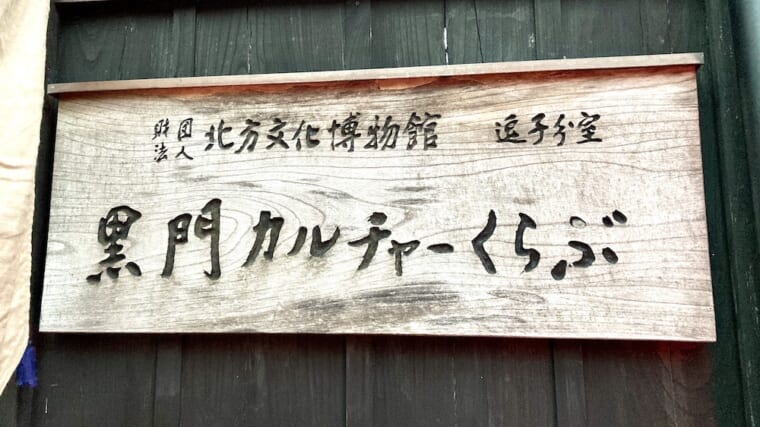 財団法人 北方文化博物館 逗子分室
黒門カルチャーくらぶ